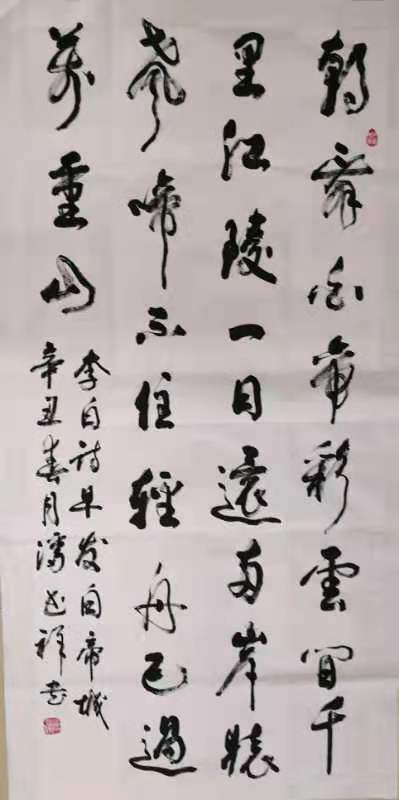 朝辭白帝彩雲間千
里江陵一日還兩岸猿
聲啼不住輕舟已過
萬重山
李白詩早發白帝城
辛丑春月祥書